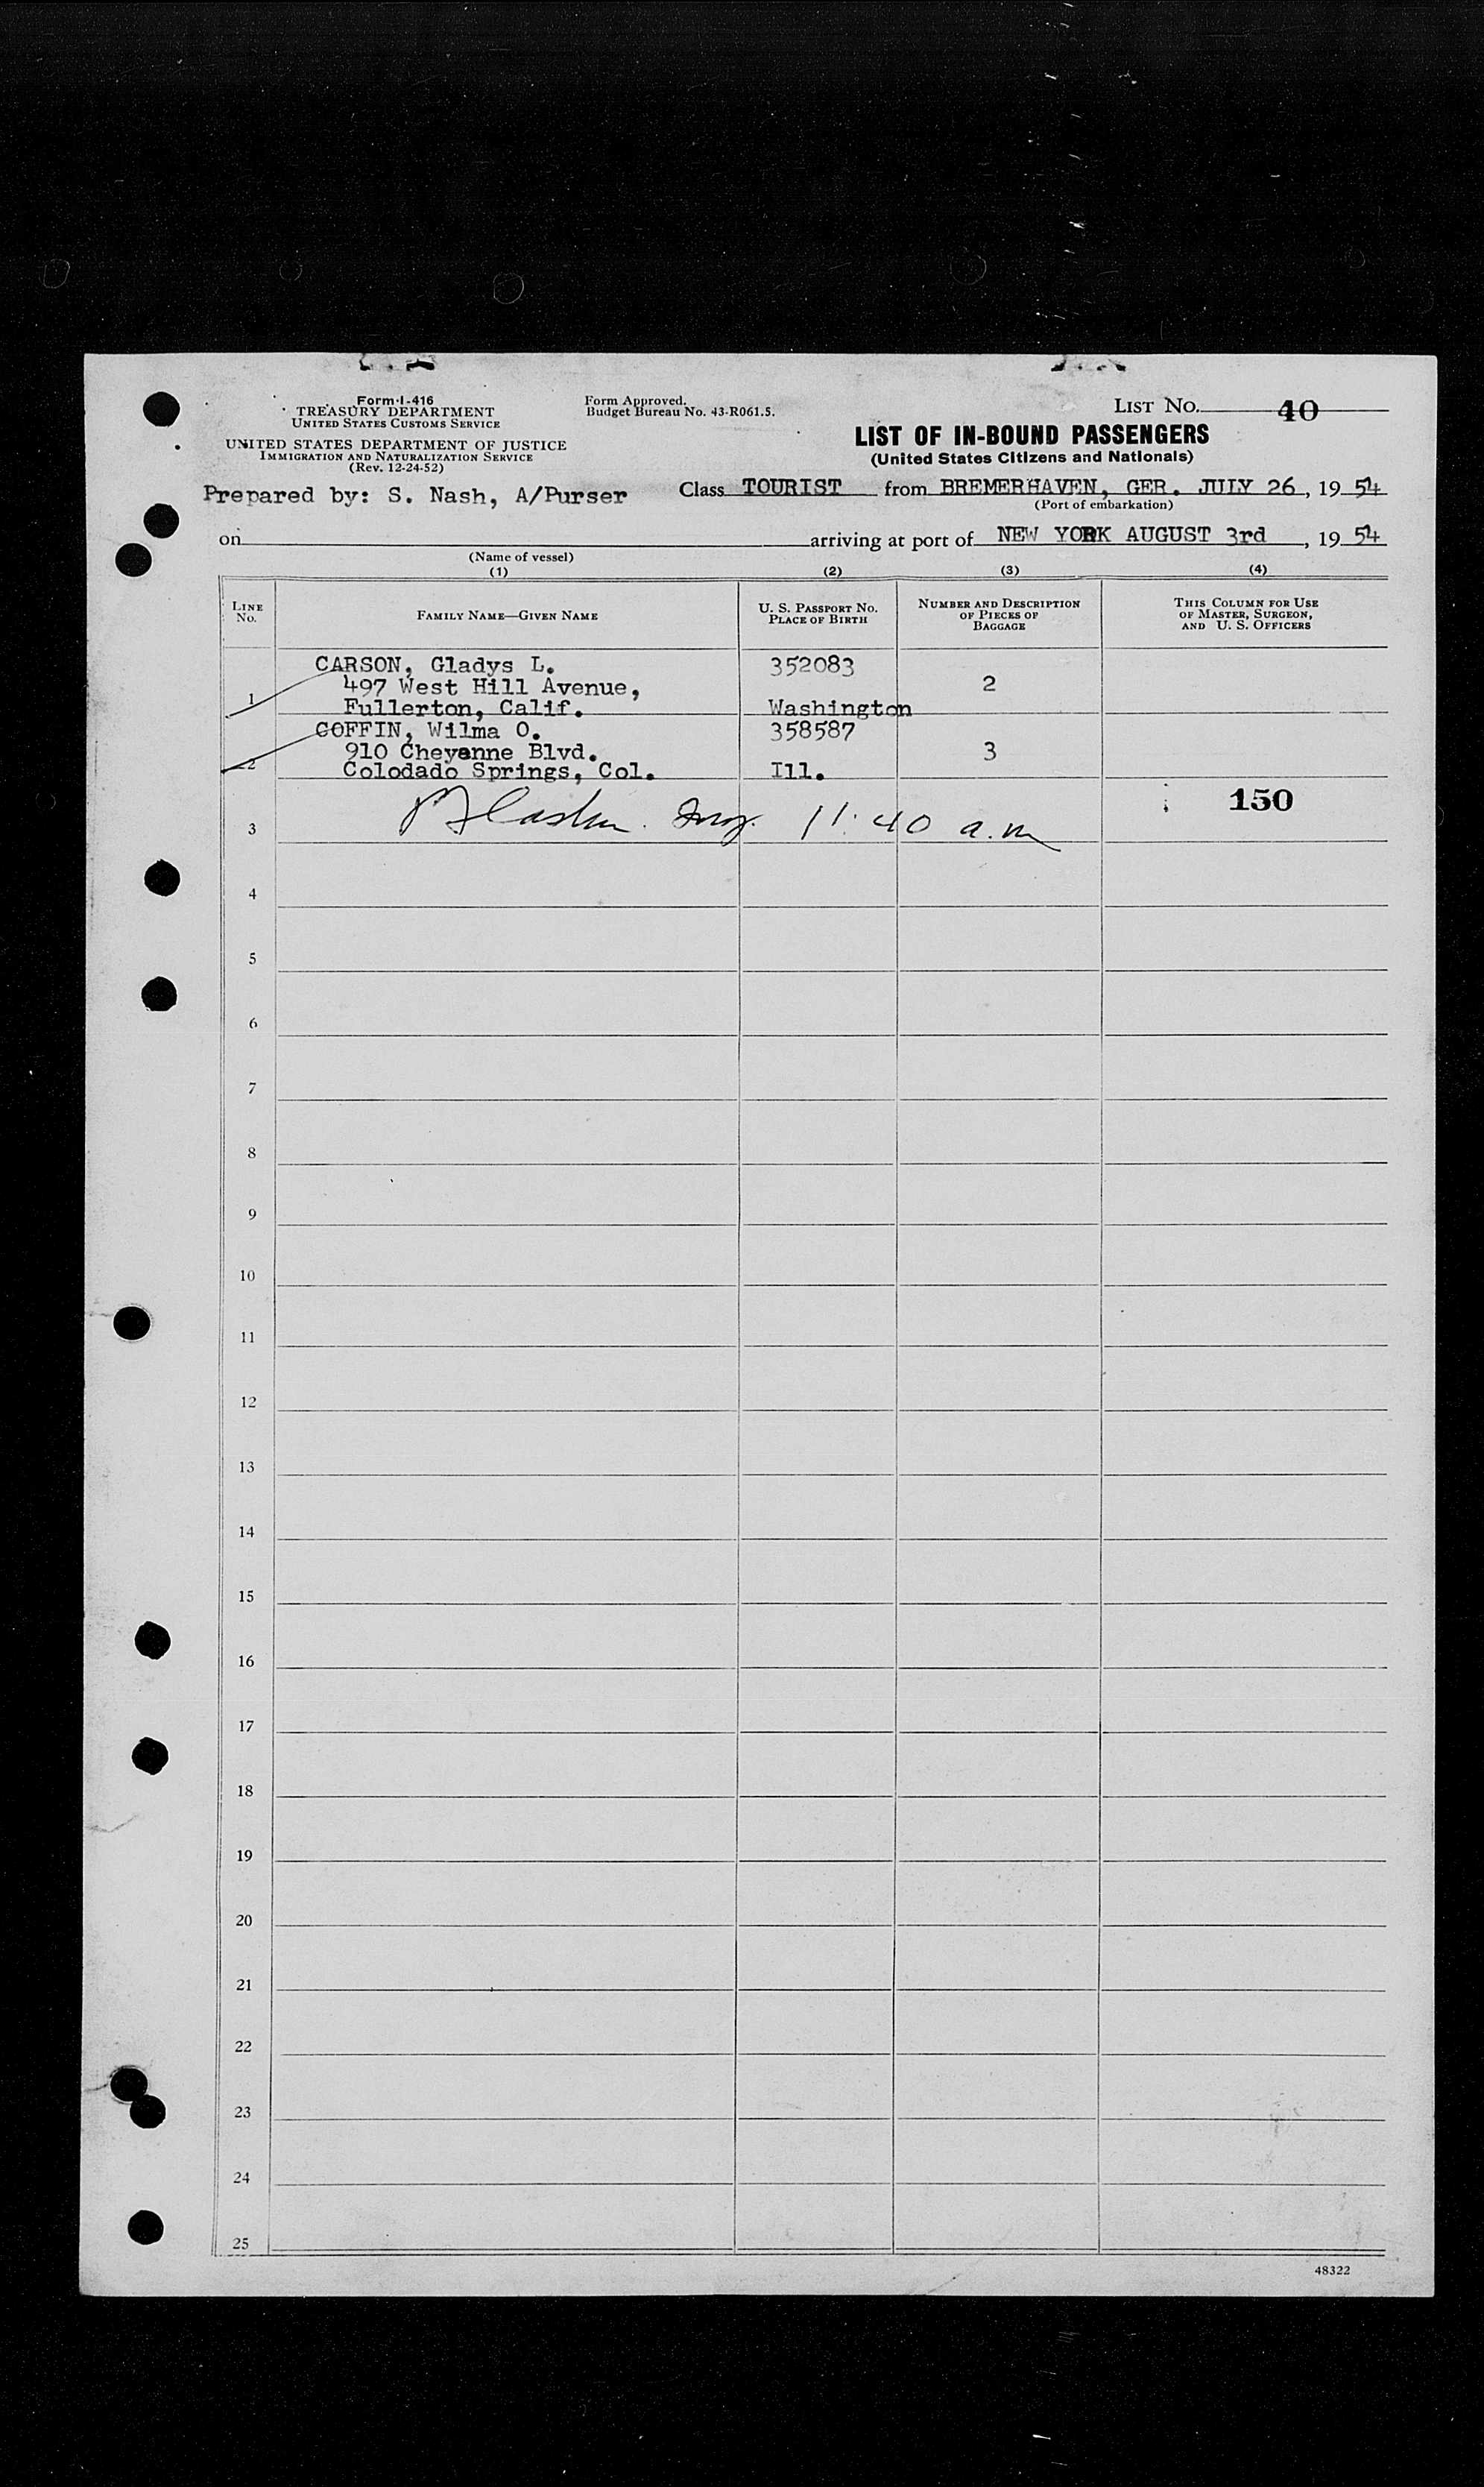 Form I-416
TREASURY DEPARTMENT
UNITED STATES CUSTOMS SERVICE
UNITED STATES DEPARTMENT OF JUSTICE
IMMIGRATION AND NATURALIZATION SERVICE
(Rev. 12-24-52)
Form Approved.
Budget Bureau No. 43-R061.5.
LIST NO. 40
LIST OF IN-BOUND PASSENGERS
(United States Citizens and Nationals)
Prepared by: S. Nash, A/Purser
Class TOURIST from BREMERHAVEN, GER. JULY 26, 19 54
(Port of embarkation)
on arriving at port of NEW YORK AUGUST 3rd, 19 54
(Name of vessel)
(1) (2) (3) (4)
LINE NO. FAMILY NAME—GIVEN NAME U. S. PASSPORT NO. PLACE OF BIRTH NUMBER AND DESCRIPTION OF PIECES OF BAGGAGE THIS COLUMN FOR USE OF MASTER, SURGEON, AND U. S. OFFICERS
CARSON, Gladys L. 352083
1 497 West Hill Avenue, 2
Fullerton, Calif. Washington
COFFIN, Wilma O. 358587
2 910 Cheyenne Blvd. 3
Colodado Springs, Col. Ill.
150
3 11:40 a.m
4
5
6
7
8
9
10
11
12
13
14
15
16
17
18
19
20
21
22
23
24
25
48322